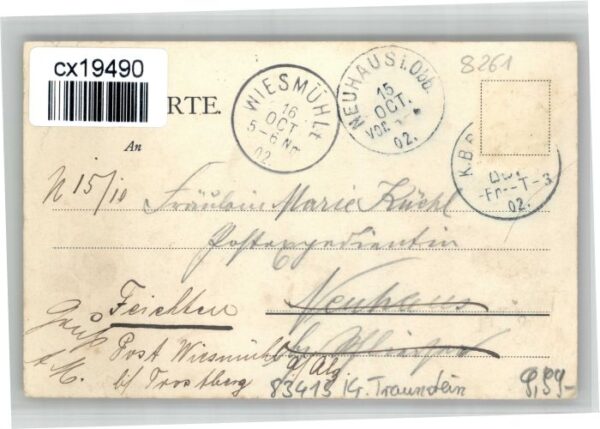 cx19490
8261
RTE.
WIESMÜHLt
16
OCT
5-6 Nm
02.
NEUHAUS i. Obb.
15
OCT.
VOR
02.
K.B.
02.
An
N 15/10
Fräulein Marie Küchl
Postexpedientin
Neuhaus
Feichten
Post Wiesmühl a/Alz
b/ Trostberg
83413 Kr. Traunstein
9,59-